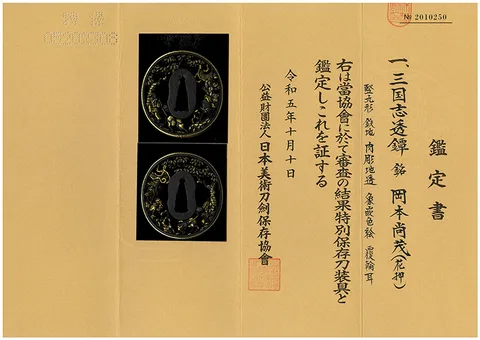 № 2010250
鑑定書
一、三国志透鐔 銘 岡本尚茂(花押)
竪丸形 鉄地 肉彫地透 象嵌色絵 覆輪耳
右は當協會に於て審査の結果特別保存刀装具と
鑑定しこれを証する
令和五年十月十日
公益財團法人 日本美術刀劍保存協會